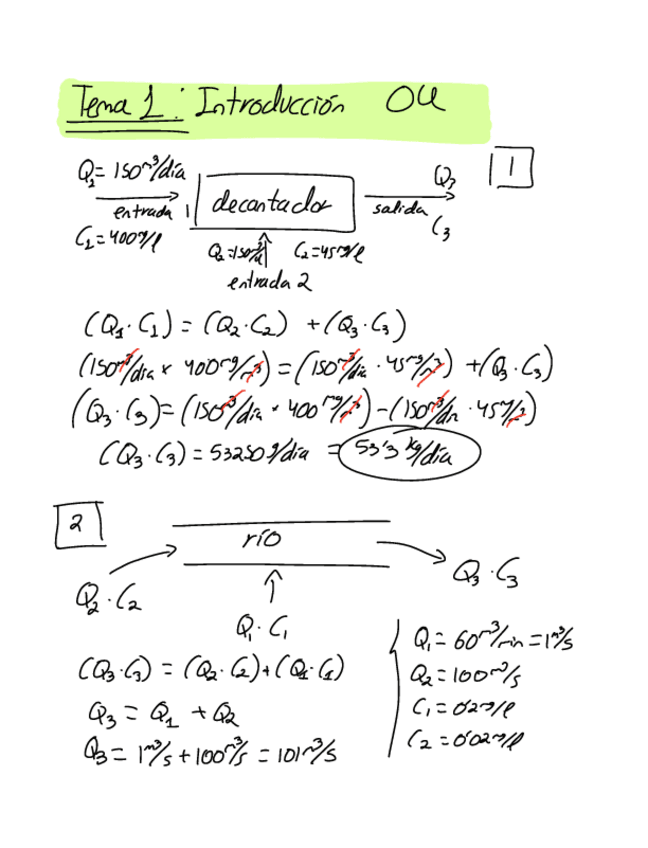 Tema 1: Introducción OU
1
Q1 = 150 m³/día
entrada 1
C1 = 400 g/l
decantador
salida
Q3
C3
Q2 = 150 m³/d C2 = 45 mg/l
entrada 2
(Q1 · C1) = (Q2 · C2) + (Q3 · C3)
(150 m³/día × 400 mg/m³) = (150 m³/día · 45 mg/m³) + (Q3 · C3)
(Q3 · C3) = (150 m³/día × 400 mg/m³) - (150 m³/día · 45 g/m³)
(Q3 · C3) = 53250 g/día = 53'3 kg/día
2
río
Q2 · C2
Q3 · C3
Q1 · C1
(Q3 · C3) = (Q2 · C2) + (Q1 · C1)
Q3 = Q1 + Q2
Q3 = 1 m³/s + 100 m³/s = 101 m³/s
Q1 = 60 m³/min = 1 m³/s
Q2 = 100 m³/s
C1 = 0'2 mg/l
C2 = 0'02 mg/l